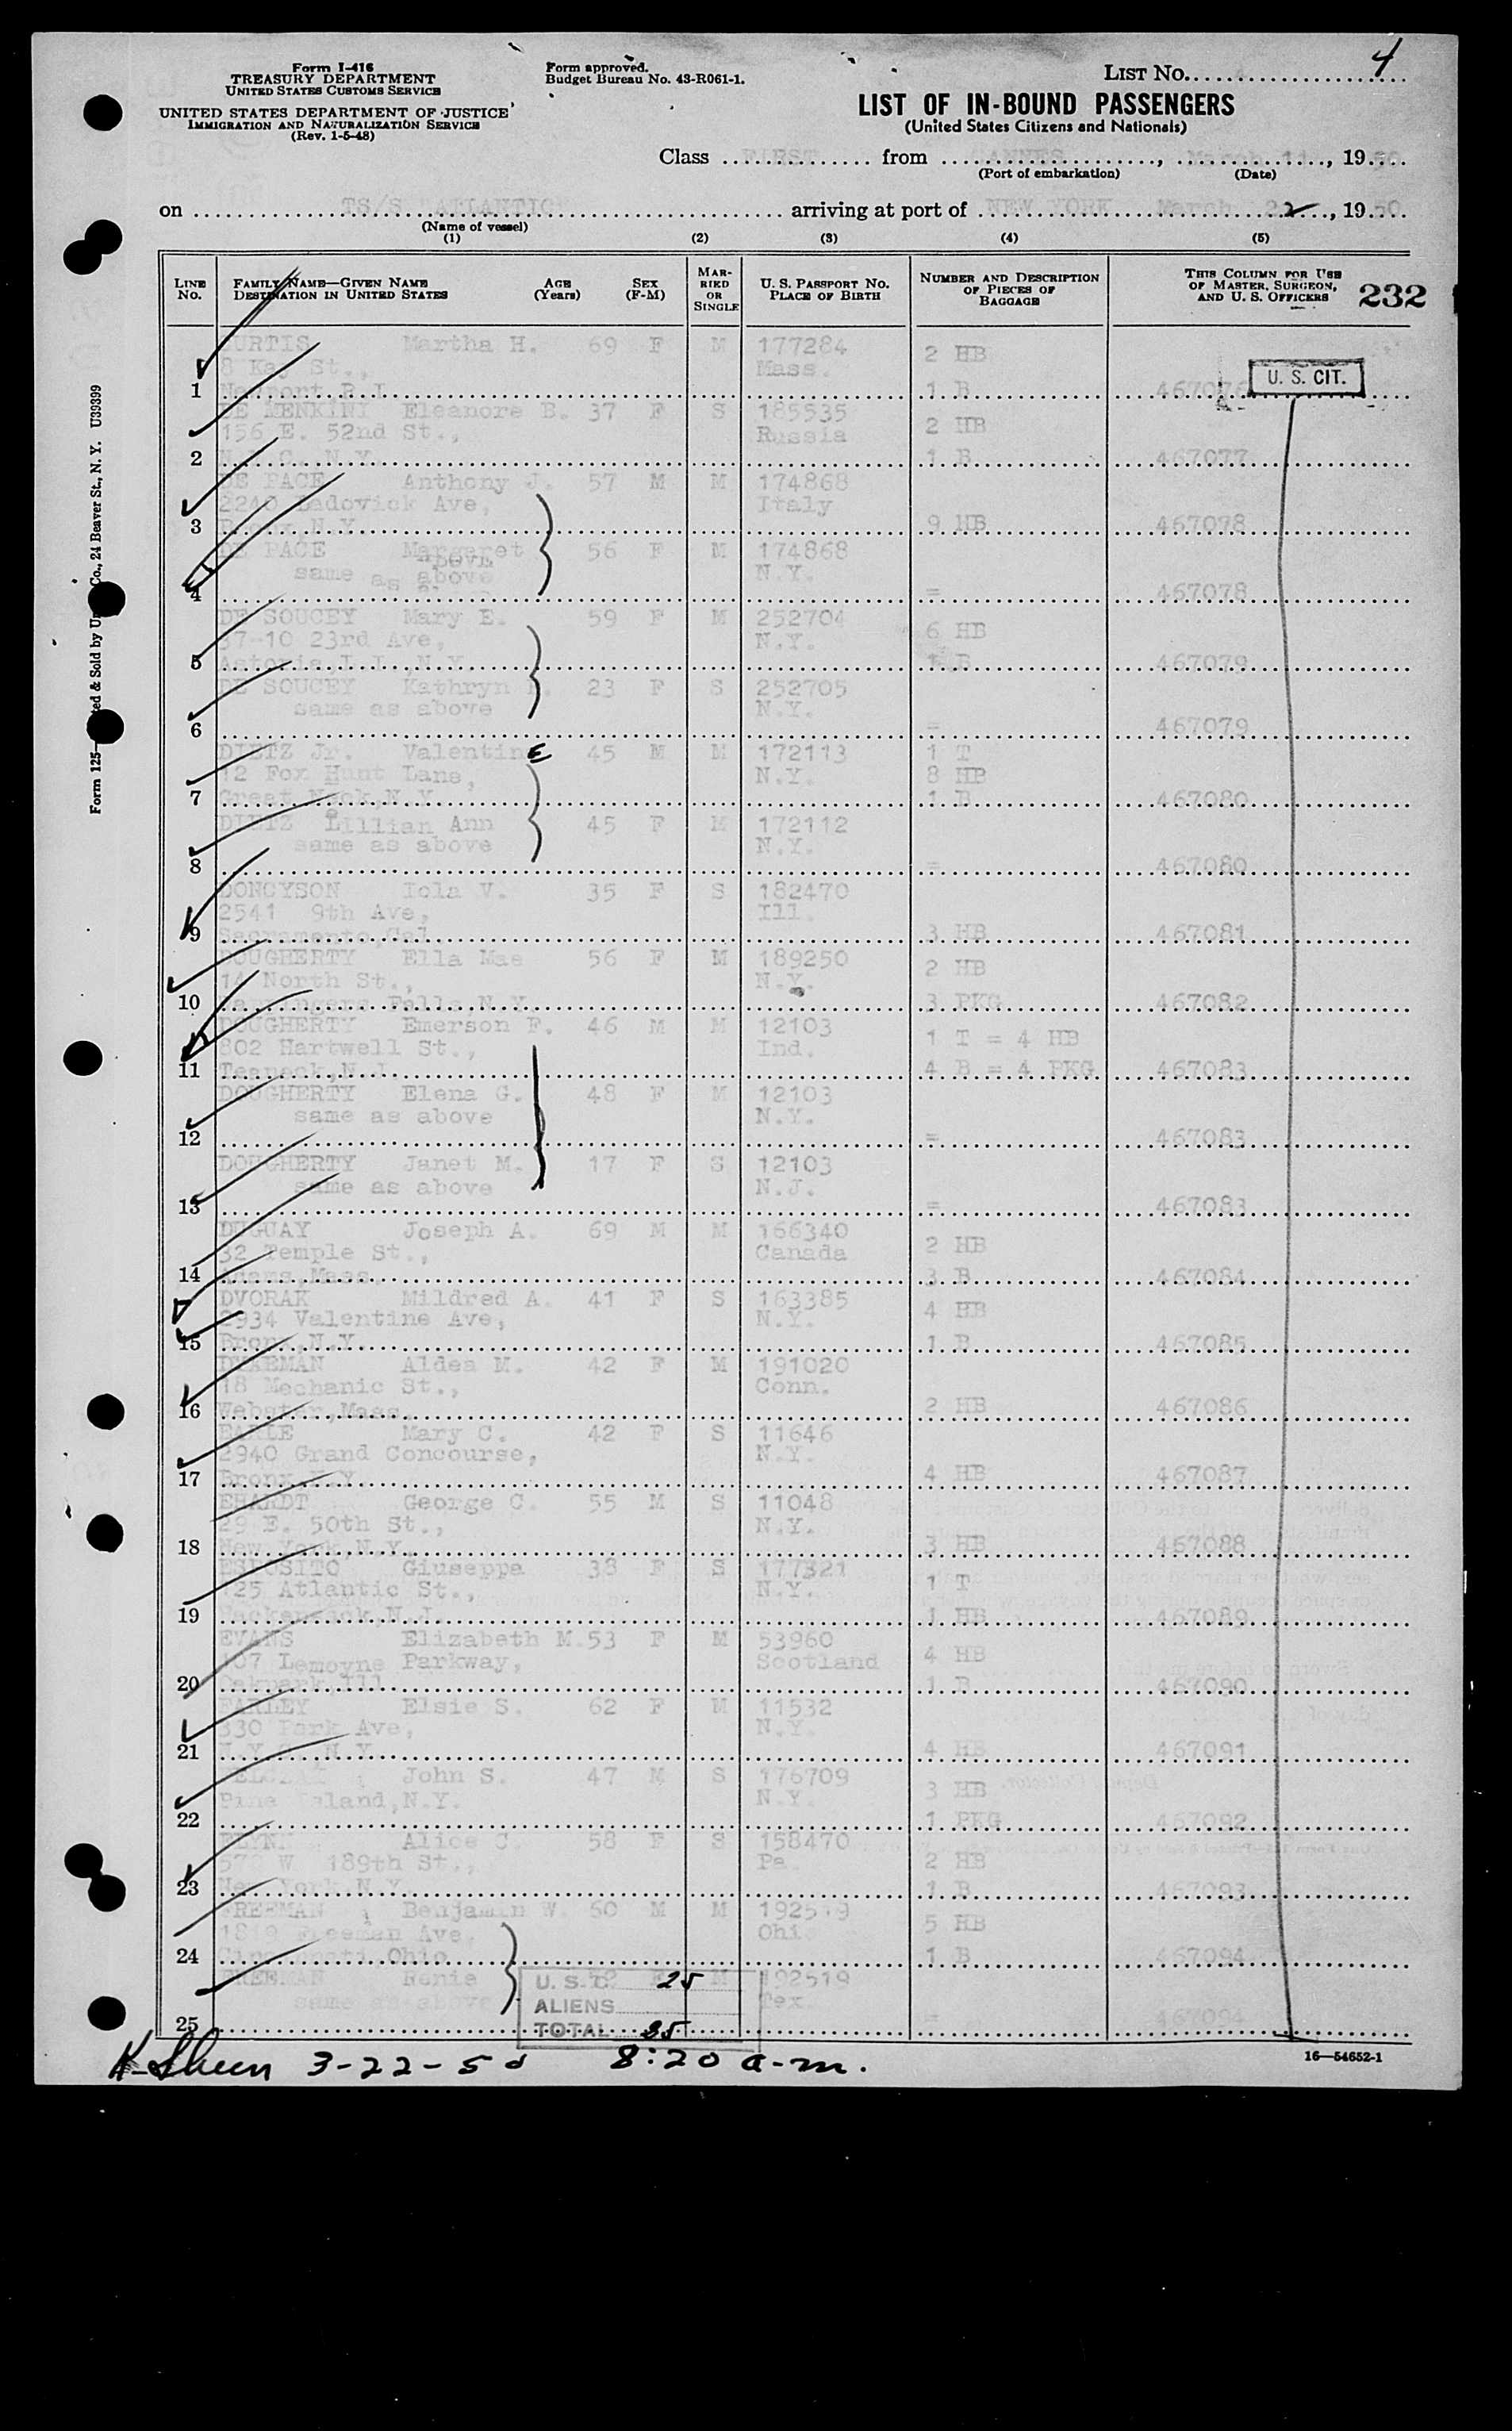 Form I-416
TREASURY DEPARTMENT
UNITED STATES CUSTOMS SERVICE
UNITED STATES DEPARTMENT OF JUSTICE
IMMIGRATION AND NATURALIZATION SERVICE
(Rev. 1-5-48)
Form approved.
Budget Bureau No. 43-R061-1.
LIST No. 4
LIST OF IN-BOUND PASSENGERS
(United States Citizens and Nationals)
Class FIRST from CANNES, March 11, 1950
(Port of embarkation) (Date)
on TS/S ATLANTIC arriving at port of NEW YORK March 22, 1950
(Name of vessel)
(1) (2) (3) (4) (5)
LINE No. FAMILY NAME—GIVEN NAME DESTINATION IN UNITED STATES AGE (Years) SEX (F-M) MARRIED OR SINGLE U. S. PASSPORT NO. PLACE OF BIRTH NUMBER AND DESCRIPTION OF PIECES OF BAGGAGE THIS COLUMN FOR USE OF MASTER, SURGEON, AND U. S. OFFICERS 232
CURTIS Martha H. 69 F M 177284 2 HB
8 Kay St., Mass. U. S. CIT.
1 Newport R.I. 1 B 467076
DE MENKINI Eleanore B. 37 F S 185535 2 HB
156 E. 52nd St., Russia
2 N.Y.C. N.Y. 1 B 467077
DE PACE Anthony J. 57 M M 174868
2240 Ladovick Ave, Italy
3 Bronx N.Y. 9 HB 467078
DE PACE Margaret 56 F M 174868
same as above N.Y.
4 = 467078
DE SOUCEY Mary E. 59 F M 252704 6 HB
37-10 23rd Ave, N.Y.
5 Astoria L.I., N.Y. 1 B 467079
DE SOUCEY Kathryn 23 F S 252705
same as above N.Y.
6 = 467079
DIETZ Jr. Valentine 45 M M 172113 1 T
12 Fox Hunt Lane, N.Y. 8 HB
7 Great Neck, N.Y. 1 B 467080
DIETZ Lillian Ann 45 F M 172112
same as above N.Y.
8 = 467080
DONCYSON Iola V. 35 F S 182470
2541 9th Ave, Ill.
9 Sacramento, Cal. 3 HB 467081
DOUGHERTY Ella Mae 56 F M 189250 2 HB
14 North St., N.Y.
10 Wappingers Falls, N.Y. 3 PKG 467082
DOUGHERTY Emerson F. 46 M M 12103 1 T = 4 HB
802 Hartwell St., Ind.
11 Teaneck, N.J. 4 B = 4 PKG 467083
DOUGHERTY Elena G. 48 F M 12103
same as above N.Y.
12 = 467083
DOUGHERTY Janet M. 17 F S 12103
same as above N.J.
13 = 467083
DUGUAY Joseph A. 69 M M 166340 2 HB
32 Temple St., Canada
14 Adams, Mass. 3 B 467084
DVORAK Mildred A. 41 F S 163385 4 HB
2934 Valentine Ave, N.Y.
15 Bronx, N.Y. 1 B 467085
Aldea M. 42 F M 191020
18 Mechanic St., Conn.
16 Webster, Mass. 2 HB 467086
EARLE Mary C. 42 F S 11646
2940 Grand Concourse, N.Y.
17 Bronx, N.Y. 4 HB 467087
EHARDT George C. 55 M S 11048
29 E. 50th St., N.Y.
18 New York, N.Y. 3 HB 467088
ESPOSITO Giuseppa 38 F S 177321 1 T
125 Atlantic St., N.Y.
19 Hackensack, N.J. 1 HB 467089
EVANS Elizabeth M. 53 F M 53960 4 HB
407 Lemoyne Parkway, Scotland
20 Oakpark, Ill. 1 B 467090
FARLEY Elsie S. 62 F M 11532
830 Park Ave, N.Y.
21 N.Y.C. N.Y. 4 HB 467091
John S. 47 M S 176709 3 HB
Pine Island, N.Y. N.Y.
22 1 PKG 467092
FLYNN Alice C. 58 F S 158470 2 HB
572 W 189th St., Pa.
23 New York N.Y. 1 B 467093
FREEMAN Benjamin W. 60 M M 192519 5 HB
Freeman Ave, Ohi
24 Cincinnati, Ohio 1 B 467094
FREEMAN Renie F M 192519
same as above Tex.
25 = 467094
U. S. C. 25
ALIENS
TOTAL 25
K. Sheen 3-22-50 8:20 a.m.
16—54652-1
Form 125— Co., 24 Beaver St., N. Y. U39399